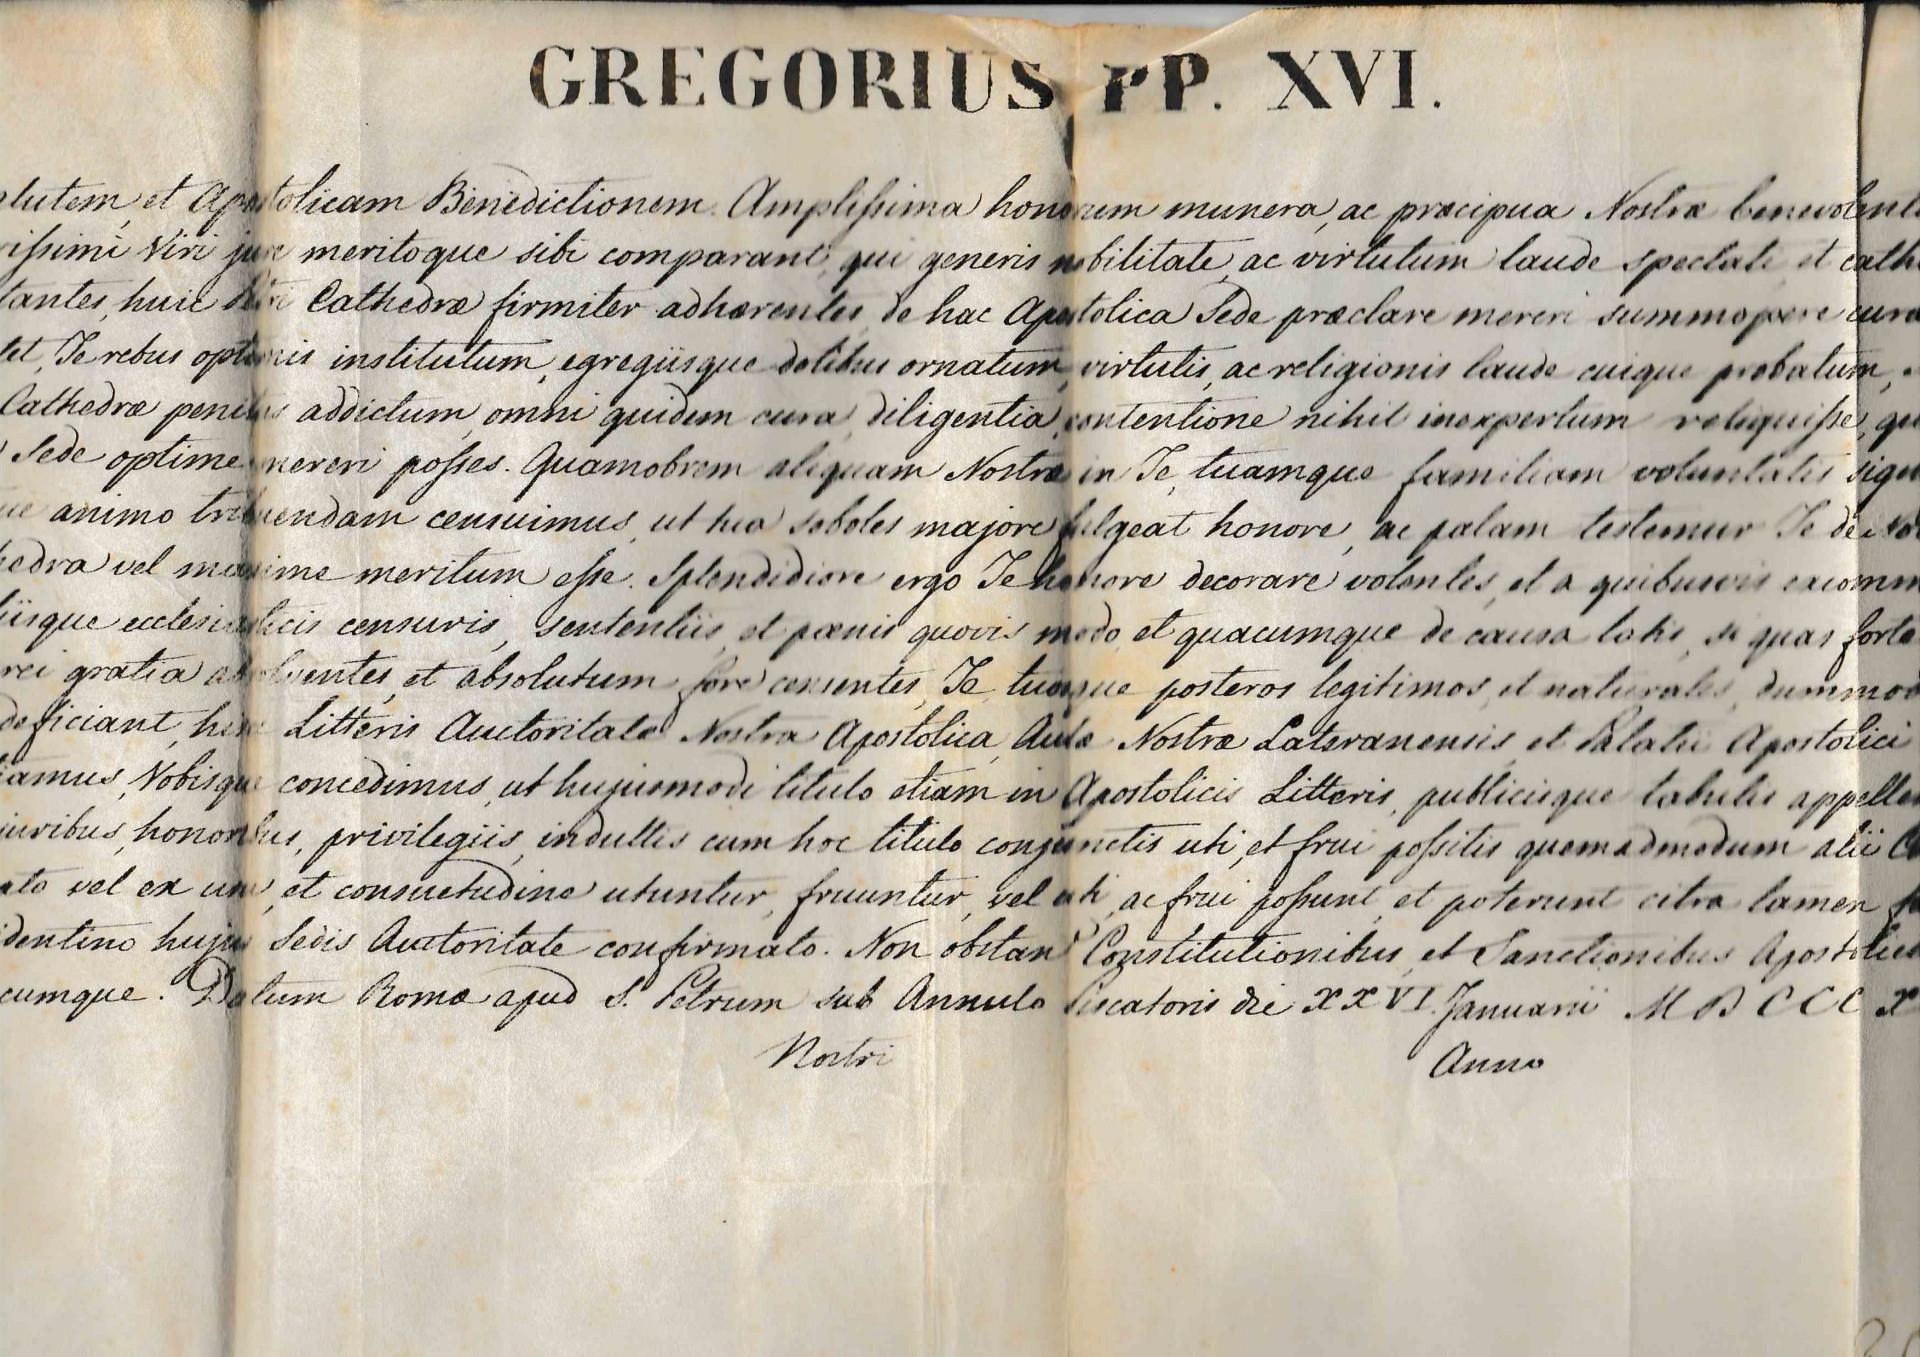 GREGORIUS PP. XVI.
lutem, et Apostolicam Benedictionem. Amplissima honorum munera, ac præcipua Nostræ benevolent
rissimi Viri jure meritoque sibi comparant, qui generis nobilitate, ac virtutum laude spectati, et cath
tantes, huic Cathedræ firmiter adhærentes, de hac Apostolica Sede præclare mereri summopere cura
tet, Te rebus optimis institutum, egregiisque dotibus ornatum, virtutis, ac religionis laude cuique probatum,
Cathedræ penitus addictum, omni quidem cura, diligentia, contentione nihil inexpertum reliquisse, qu
Sede optime mereri posses. Quamobrem aliquam Nostræ in Te, tuamque familiam voluntatis sign
ue animo tribuendam censuimus, ut tua soboles majore fulgeat honore, ac palam testemur Te de
hedra vel maxime meritum esse. Splendidiore ergo Te honore decorare volentes, et a quibusvis excomm
iisque ecclesiasticis censuris, sententiis, et pœnis quovis modo, et quacumque de causa latis, si quas forte
rei gratia absolventes, et absolutum fore censentes, Te, tuosque posteros legitimos, et naturales, dummod
deficiant, hisce Litteris Auctoritate Nostra Apostolica, Aulæ Nostræ Lateranensis, et Palatii Apostolici
iamus, Vobisque concedimus, ut hujusmodi titulo etiam in Apostolicis Litteris, publicisque tabulis appella
iuribus, honoribus, privilegiis, indultis cum hoc titulo conjunctis uti, et frui possitis quemadmodum alii Co
ato vel ex usu, et consuetudine utuntur, fruuntur, vel uti, ac frui possunt, et poterunt citra tamen
dentino hujus Sedis Auctoritate confirmato. Non obstan Constitutionibus, et Sanctionibus Apostolici
cumque. Datum Romæ apud S. Petrum sub Annulo Piscatoris die XXVI. Januarii MDCCC X
Nostri Anno